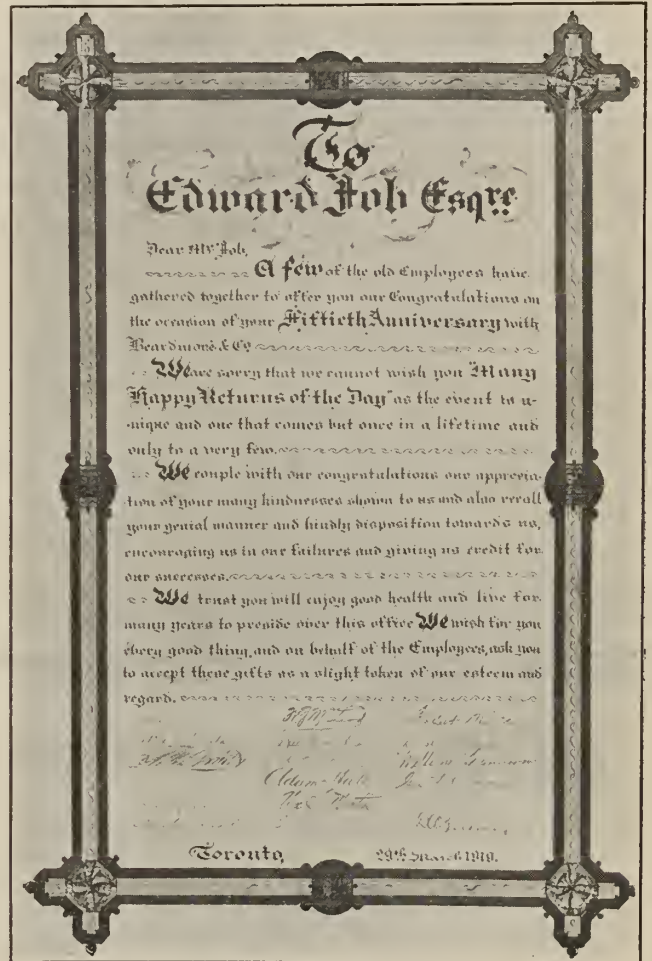 To
Edward Job Esqre
Dear Mr Job,
A few of the old Employees have
gathered together to offer you our Congratulations on
the occasion of your Fiftieth Anniversary with
Beardmore & Co
We are sorry that we cannot wish you "Many
Happy Returns of the Day" as the event is u-
nique and one that comes but once in a lifetime and
only to a very few.
We couple with our congratulations our apprecia-
tion of your many kindnesses shown to us and also recall
your genial manner and kindly disposition towards us,
encouraging us in our failures and giving us credit for
our successes.
We trust you will enjoy good health and live for
many years to preside over this office We wish for you
every good thing, and on behalf of the Employees, ask you
to accept these gifts as a slight token of our esteem and
regard.
Adam
Toronto, 29th 1919.